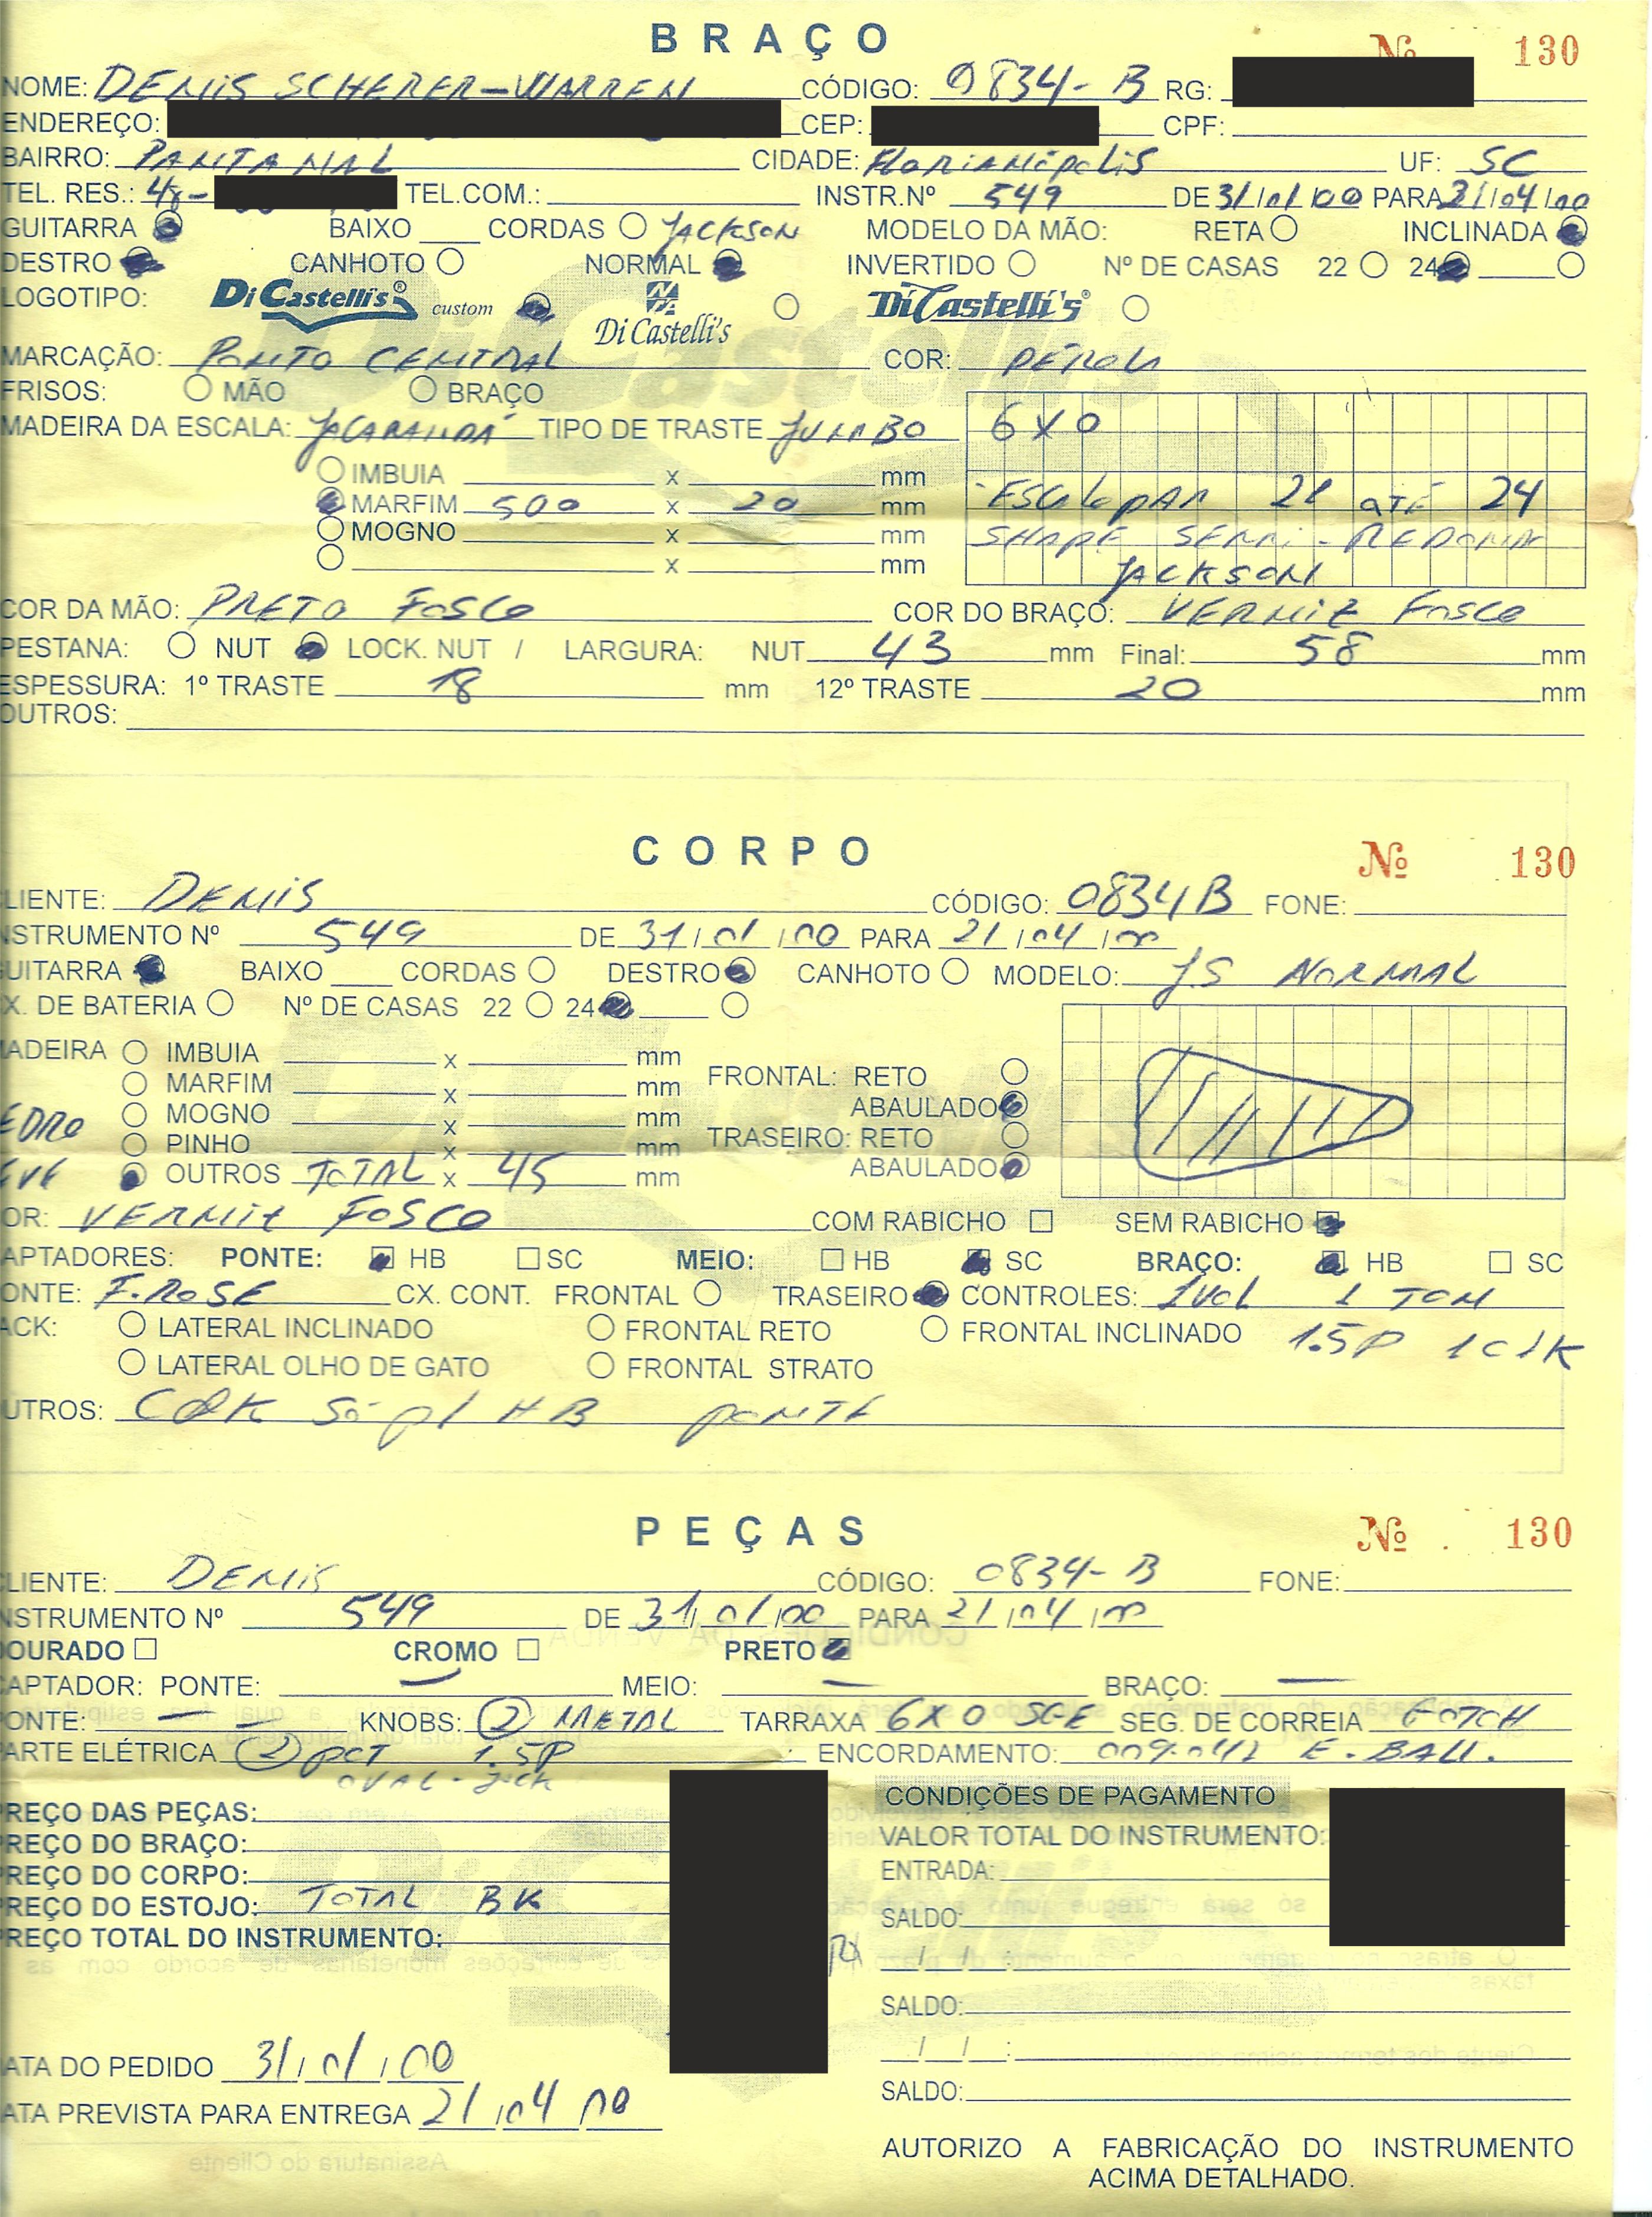 BRAÇO
Nº 130
NOME: DENIS SCHERER-WARREN CÓDIGO: 0834-B RG:
ENDEREÇO: CEP: CPF:
BAIRRO: PANTANAL CIDADE: FLORIANÓPOLIS UF: SC
TEL. RES.: 48- TEL.COM.: INSTR.Nº 549 DE 31/01/00 PARA 21/04/00
GUITARRA BAIXO CORDAS JACKSON MODELO DA MÃO: RETA INCLINADA
DESTRO CANHOTO NORMAL INVERTIDO Nº DE CASAS 22 24
LOGOTIPO: Di Castelli's® custom Di Castelli's DiCastelli's®
MARCAÇÃO: PONTO CENTRAL COR: PÉROLA
FRISOS: MÃO BRAÇO
MADEIRA DA ESCALA: JACARANDÁ TIPO DE TRASTE JUMBO 6 X 0
IMBUIA x mm
MARFIM 500 x 20 mm -ESCALOPAR 21 ATÉ 24
MOGNO x mm SHAPE SEMI-REDON
x mm JACKSON
COR DA MÃO: PRETO FOSCO COR DO BRAÇO: VERNIZ FOSCO
PESTANA: NUT LOCK. NUT / LARGURA: NUT 43 mm Final: 58 mm
ESPESSURA: 1º TRASTE 18 mm 12º TRASTE 20 mm
OUTROS:
CORPO
Nº 130
LIENTE: DENIS CÓDIGO: 0834B FONE:
NSTRUMENTO Nº 549 DE 31/01/00 PARA 21/04/00
UITARRA BAIXO CORDAS DESTRO CANHOTO MODELO: JS NORMAL
X. DE BATERIA Nº DE CASAS 22 24
ADEIRA IMBUIA x mm
MARFIM x mm FRONTAL: RETO
EDRO MOGNO x mm ABAULADO
PINHO x mm TRASEIRO: RETO
EVE OUTROS TOTAL x 45 mm ABAULADO
OR: VERNIZ FOSCO COM RABICHO SEM RABICHO
APTADORES: PONTE: HB SC MEIO: HB SC BRAÇO: HB SC
ONTE: F.ROSE CX. CONT. FRONTAL TRASEIRO CONTROLES: 1VOL 1 TON
ACK: LATERAL INCLINADO FRONTAL RETO FRONTAL INCLINADO 1.5P
LATERAL OLHO DE GATO FRONTAL STRATO
UTROS: SÓ P/ HB PONTE
PEÇAS
Nº 130
LIENTE: DENIS CÓDIGO: 0834-B FONE:
NSTRUMENTO Nº 549 DE 31/01/00 PARA 21/04/00
OURADO CROMO PRETO
APTADOR: PONTE: — MEIO: — BRAÇO: —
ONTE: — — KNOBS: 2 METAL TARRAXA 6 X 0 SGE SEG. DE CORREIA GOTOH
ARTE ELÉTRICA 2 POT 1.5P ENCORDAMENTO: 009.042 E. BALL.
OVAL-Jack
REÇO DAS PEÇAS: CONDIÇÕES DE PAGAMENTO
REÇO DO BRAÇO: VALOR TOTAL DO INSTRUMENTO:
REÇO DO CORPO: ENTRADA:
REÇO DO ESTOJO: TOTAL BK SALDO:
REÇO TOTAL DO INSTRUMENTO:
/ / :
SALDO:
ATA DO PEDIDO 31/01/00 / / :
ATA PREVISTA PARA ENTREGA 21/04/00 SALDO:
AUTORIZO A FABRICAÇÃO DO INSTRUMENTO
ACIMA DETALHADO.